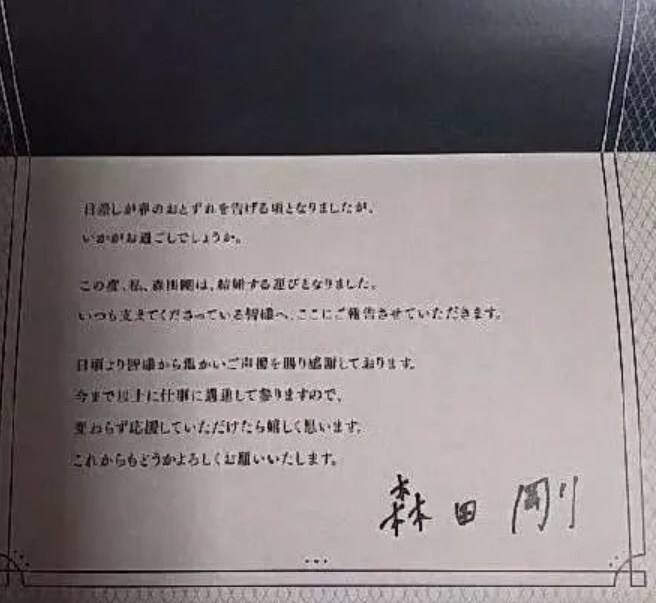 日差しが春のおとずれを告げる頃となりましたが、
いかがお過ごしでしょうか。
この度、私、森田剛は、結婚する運びとなりました。
いつも支えてくださっている皆様へ、ここにご報告させていただきます。
日頃より皆様から温かいご声援を賜り感謝しております。
今まで以上に仕事に邁進して参りますので、
変わらず応援していただけたら嬉しく思います。
これからもどうかよろしくお願いいたします。
森田 剛